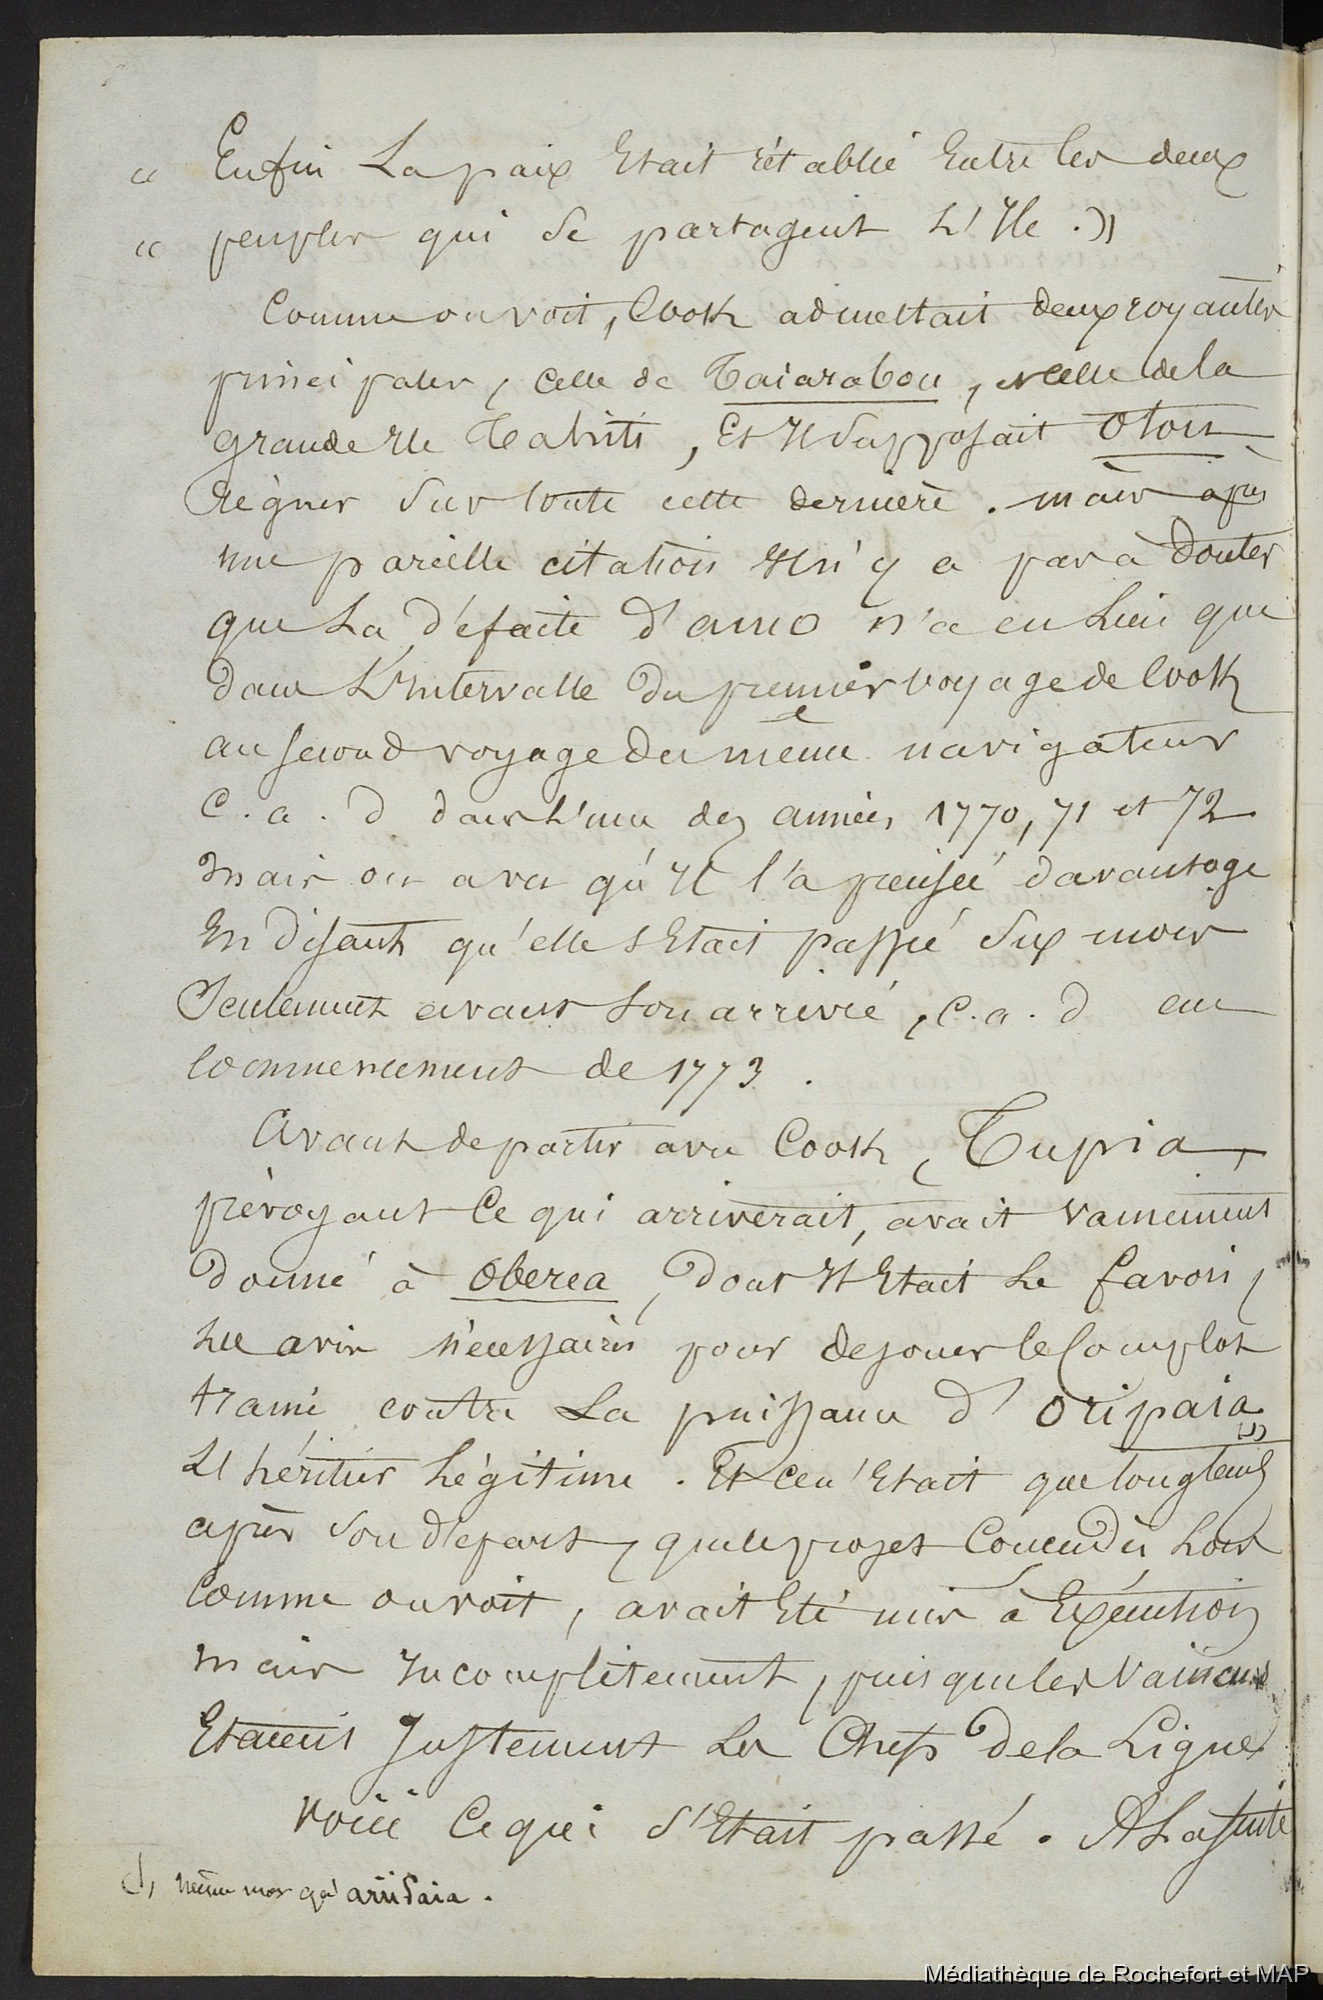 « Enfin la paix était rétablie entre les deux
« peuples qui se partagent l'île. »
Comme on voit, Cook admettait deux royautés
principales, celle de Taiarabou, et celle de la
grande île Tahiti, et il supposait Otou
régner sur toute cette dernière. mais après
une pareille citation il n'y a pas à douter
que la défaite d'amo n'a eu lieu que
dans l'intervalle du premier voyage de Cook
au second voyage du même navigateur
c.a.d dans l'une des années 1770, 71 et 72
mais on a vu qu'il l'a précisée davantage
en disant qu'elle s'était passée six mois
seulement avant son arrivée, c.a.d au
commencement de 1773.
Avant de partir avec Cook, Tupia,
prévoyant ce qui arriverait, avait vainement
donné à Oberea, dont il était le favori,
les avis nécessaires pour déjouer le complot
tramé contre la puissance d'Oripaia (1)
l'héritier légitime. Et ce n'était que longtems
après son départ, que le projet conçu dès lors
comme on voit, avait été mis à exécution
mais incomplètement, puisque les vaincus
étaient justement les chefs de la ligue
voici ce qui s'était passé. A la suite
(1) même mot qu'ariipaia.
Médiathèque de Rochefort et MAP